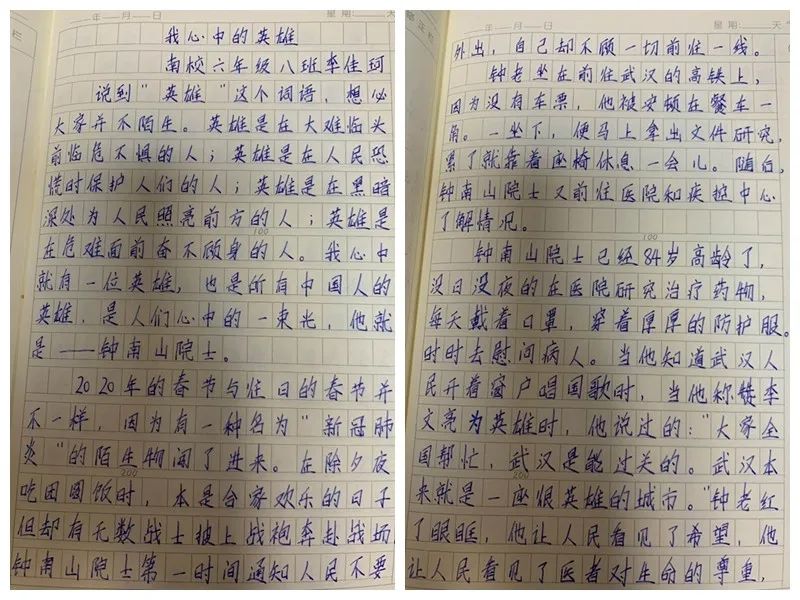 年 月 日
星期: 天
我心中的英雄
南校六年级八班李佳珂
说到"英雄"这个词语，想必
大家并不陌生。英雄是在大难临头
前临危不惧的人；英雄是在人民恐
慌时保护人们的人；英雄是在黑暗
深处为人民照亮前方的人；英雄是
100
在危难面前奋不顾身的人。我心中
就有一位英雄，也是所有中国人的
英雄，是人们心中的一束光，他就
是——钟南山院士。
2020年的春节与往日的春节并
不一样，因为有一种名为"新冠肺
炎"的陌生物闯了进来。在除夕夜
200
吃团圆饭时，本是合家欢乐的日子
但却有无数战士披上战袍奔赴战场
钟南山院士第一时间通知人民不要
年 月 日
星期: 天
外出，自己却不顾一切前往一线。
钟老坐在前往武汉的高铁上，
因为没有车票，他被安顿在餐车一
角。一坐下，便马上拿出文件研究，
累了就靠着座椅休息一会儿。随后，
钟南山院士又前往医院和疾控中心
了解情况。
100
钟南山院士已经84岁高龄了，
没日没夜的在医院研究治疗药物，
每天戴着口罩，穿着厚厚的防护服。
时时去慰问病人。当他知道武汉人
民开着窗户唱国歌时，当他称赞李
文亮为英雄时，他说过的："大家全
国帮忙，武汉是能过关的。武汉本
200
来就是一座很英雄的城市。"钟老红
了眼眶，他让人民看见了希望，他
让人民看见了医者对生命的尊重，